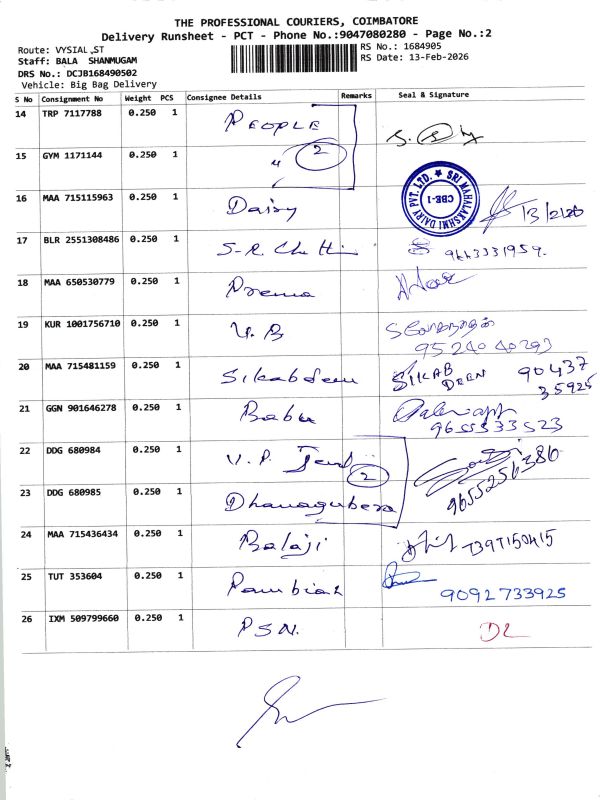 THE PROFESSIONAL COURIERS, COIMBATORE
Delivery Runsheet - PCT - Phone No.:9047080280 - Page No.:2
Route: VYSIAL ,ST
Staff: BALA SHANMUGAM
DRS No.: DCJB168490502
Vehicle: Big Bag Delivery
RS No.: 1684905
RS Date: 13-Feb-2026
S No Consignment No Weight PCS Consignee Details Remarks Seal & Signature
14 TRP 7117788 0.250 1 PEOPLE
15 GYM 1171144 0.250 1 〃 2
16 MAA 715115963 0.250 1 Dairy SRI MAHALAKSHMI DAIRY PVT. LTD. ★ CBE-1 13/2/26
17 BLR 2551308486 0.250 1 S-R. 9663331959.
18 MAA 650530779 0.250 1 Prema
19 KUR 1001756710 0.250 1 V.B 95240 40293
20 MAA 715481159 0.250 1 Sikabdeen SIKAB DEEN 90437 35925
21 GGN 901646278 0.250 1 Babu 9655533523
22 DDG 680984 0.250 1 V.P. 2 9655256386
23 DDG 680985 0.250 1 Dhanagubera
24 MAA 715436434 0.250 1 Balaji 7397150415
25 TUT 353604 0.250 1 9092733925
26 IXM 509799660 0.250 1 PSN. DL